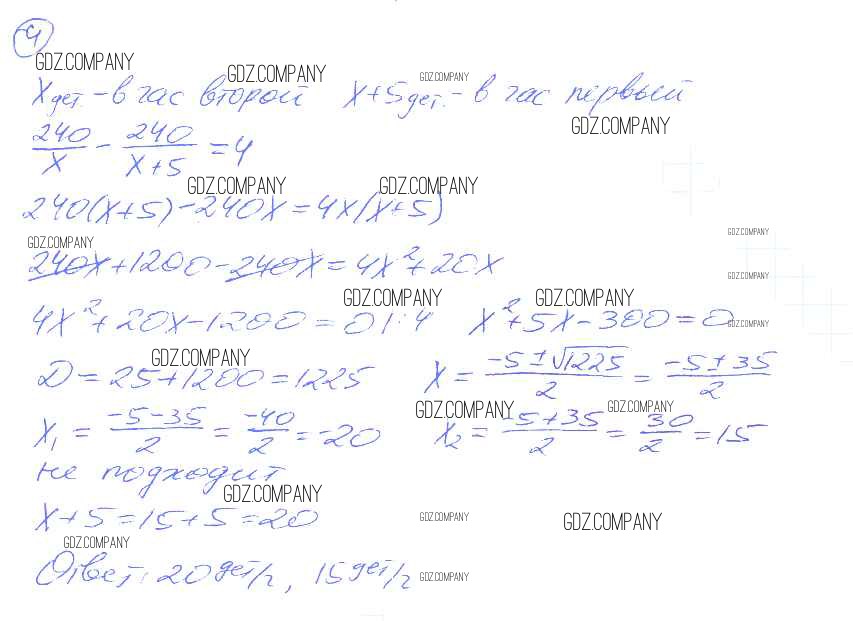 4
GDZ.COMPANY GDZ.COMPANY GDZ.COMPANY
x дет. - в час второй x+5 дет. - в час первый
GDZ.COMPANY
240/x - 240/(x+5) = 4
GDZ.COMPANY GDZ.COMPANY
240(x+5) - 240x = 4x(x+5)
GDZ.COMPANY GDZ.COMPANY
240x + 1200 - 240x = 4x² + 20x
GDZ.COMPANY
GDZ.COMPANY GDZ.COMPANY
4x² + 20x - 1200 = 0 |:4 x² + 5x - 300 = 0 GDZ.COMPANY
GDZ.COMPANY
D = 25 + 1200 = 1225 x = (-5 ± √1225)/2 = (-5 ± 35)/2
GDZ.COMPANY GDZ.COMPANY
x₁ = (-5-35)/2 = -40/2 = -20 x₂ = (-5+35)/2 = 30/2 = 15
не подходит
GDZ.COMPANY
x+5 = 15+5 = 20 GDZ.COMPANY GDZ.COMPANY
GDZ.COMPANY
Ответ: 20 дет/ч, 15 дет/ч GDZ.COMPANY